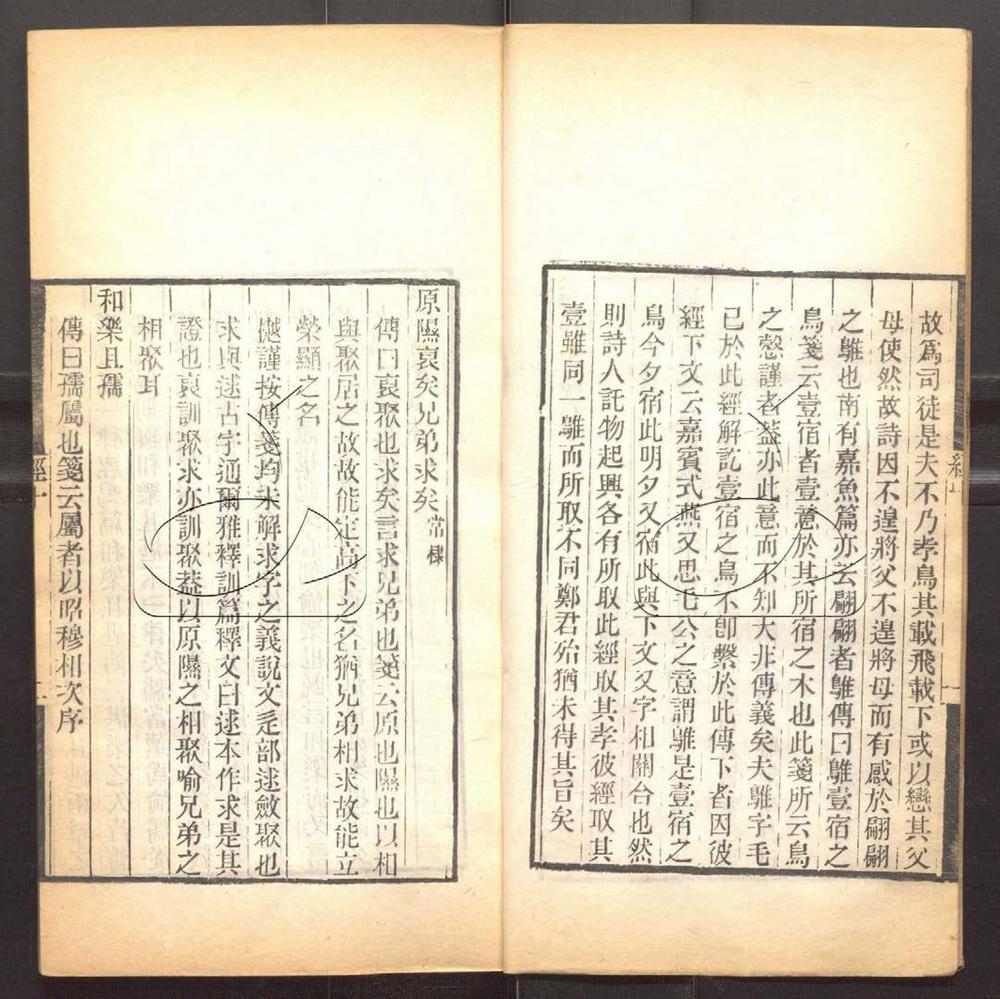 故爲司徒是夫不乃孝鳥其載飛載下或以戀其父
母使然故詩因不遑將父不遑將母而有感於翩翩
之鵻也南有嘉魚篇亦云翩翩者鵻傳曰鵻壹宿之
鳥箋云壹宿者壹意於其所宿之木也此箋所云鳥
之愨謹者葢亦此意而不知大非傳義矣夫鵻字毛
已於此經解訖壹宿之鳥不卽繫於此傳下者因彼
經下文云嘉賓式燕又思毛公之意謂鵻是壹宿之
鳥今夕宿此明夕又宿此與下文又字相關合也然
則詩人託物起興各有所取此經取其孝彼經取其
壹雖同一鵻而所取不同鄭君殆猶未待其旨矣
原隰裒矣兄弟求矣 常棣
傳曰裒聚也求矣言求兄弟也箋云原也隰也以相
與聚居之故故能定高下之名猶兄弟相求故能立
榮顯之名
樾謹按傳箋均未解求字之義說文辵部逑斂聚也
求與逑古字通爾雅釋訓篇釋文曰逑本作求是其
證也裒訓聚求亦訓聚葢以原隰之相聚喻兄弟之
相聚耳
和樂且孺
傳曰孺屬也箋云屬者以昭穆相次序
經十